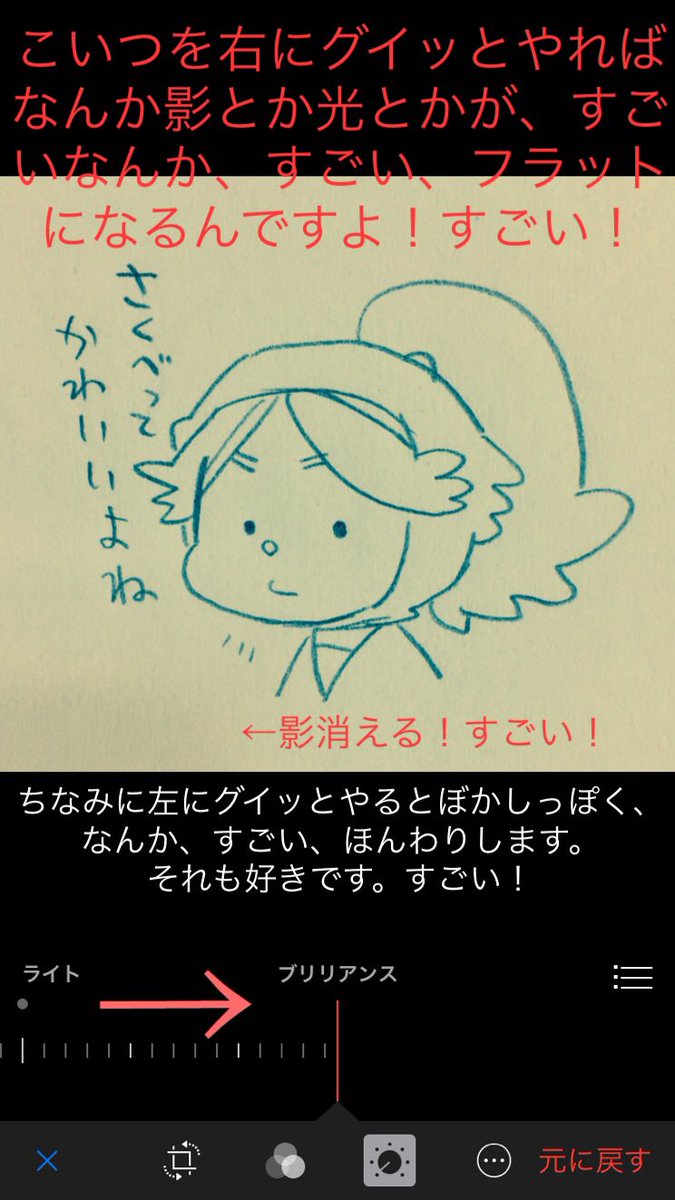 こいつを右にグイッとやれば
なんか影とか光とかが、すご
いなんか、すごい、フラット
になるんですよ！すごい！
さくべって
かわいいよね
←影消える！すごい！
ちなみに左にグイッとやるとぼかしっぽく、
なんか、すごい、ほんわりします。
それも好きです。すごい！
ライト
ブリリアンス
元に戻す